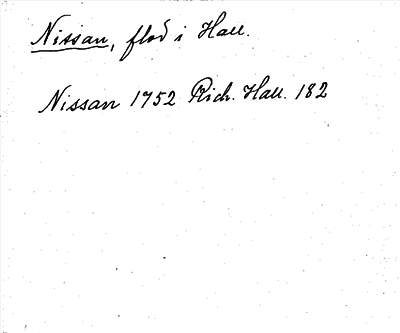 Nissan, flod i Hall.
Nissan 1752 Rich. Hall. 182